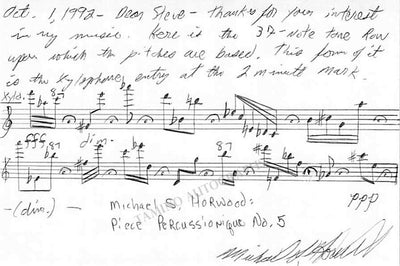 Oct. 1, 1992 - Dear Steve - thanks for your interest
in my music. Here is the 37-note tone row
upon which the pitches are based. This form of it
is the xylophone entry at the 2 minute mark.
Xylo.
8?
8?
fff
dim.
8?
8?
-(dim.) -
ppp
MICHAEL S. HORWOOD:
PIECE PERCUSSIONIQUE No. 5